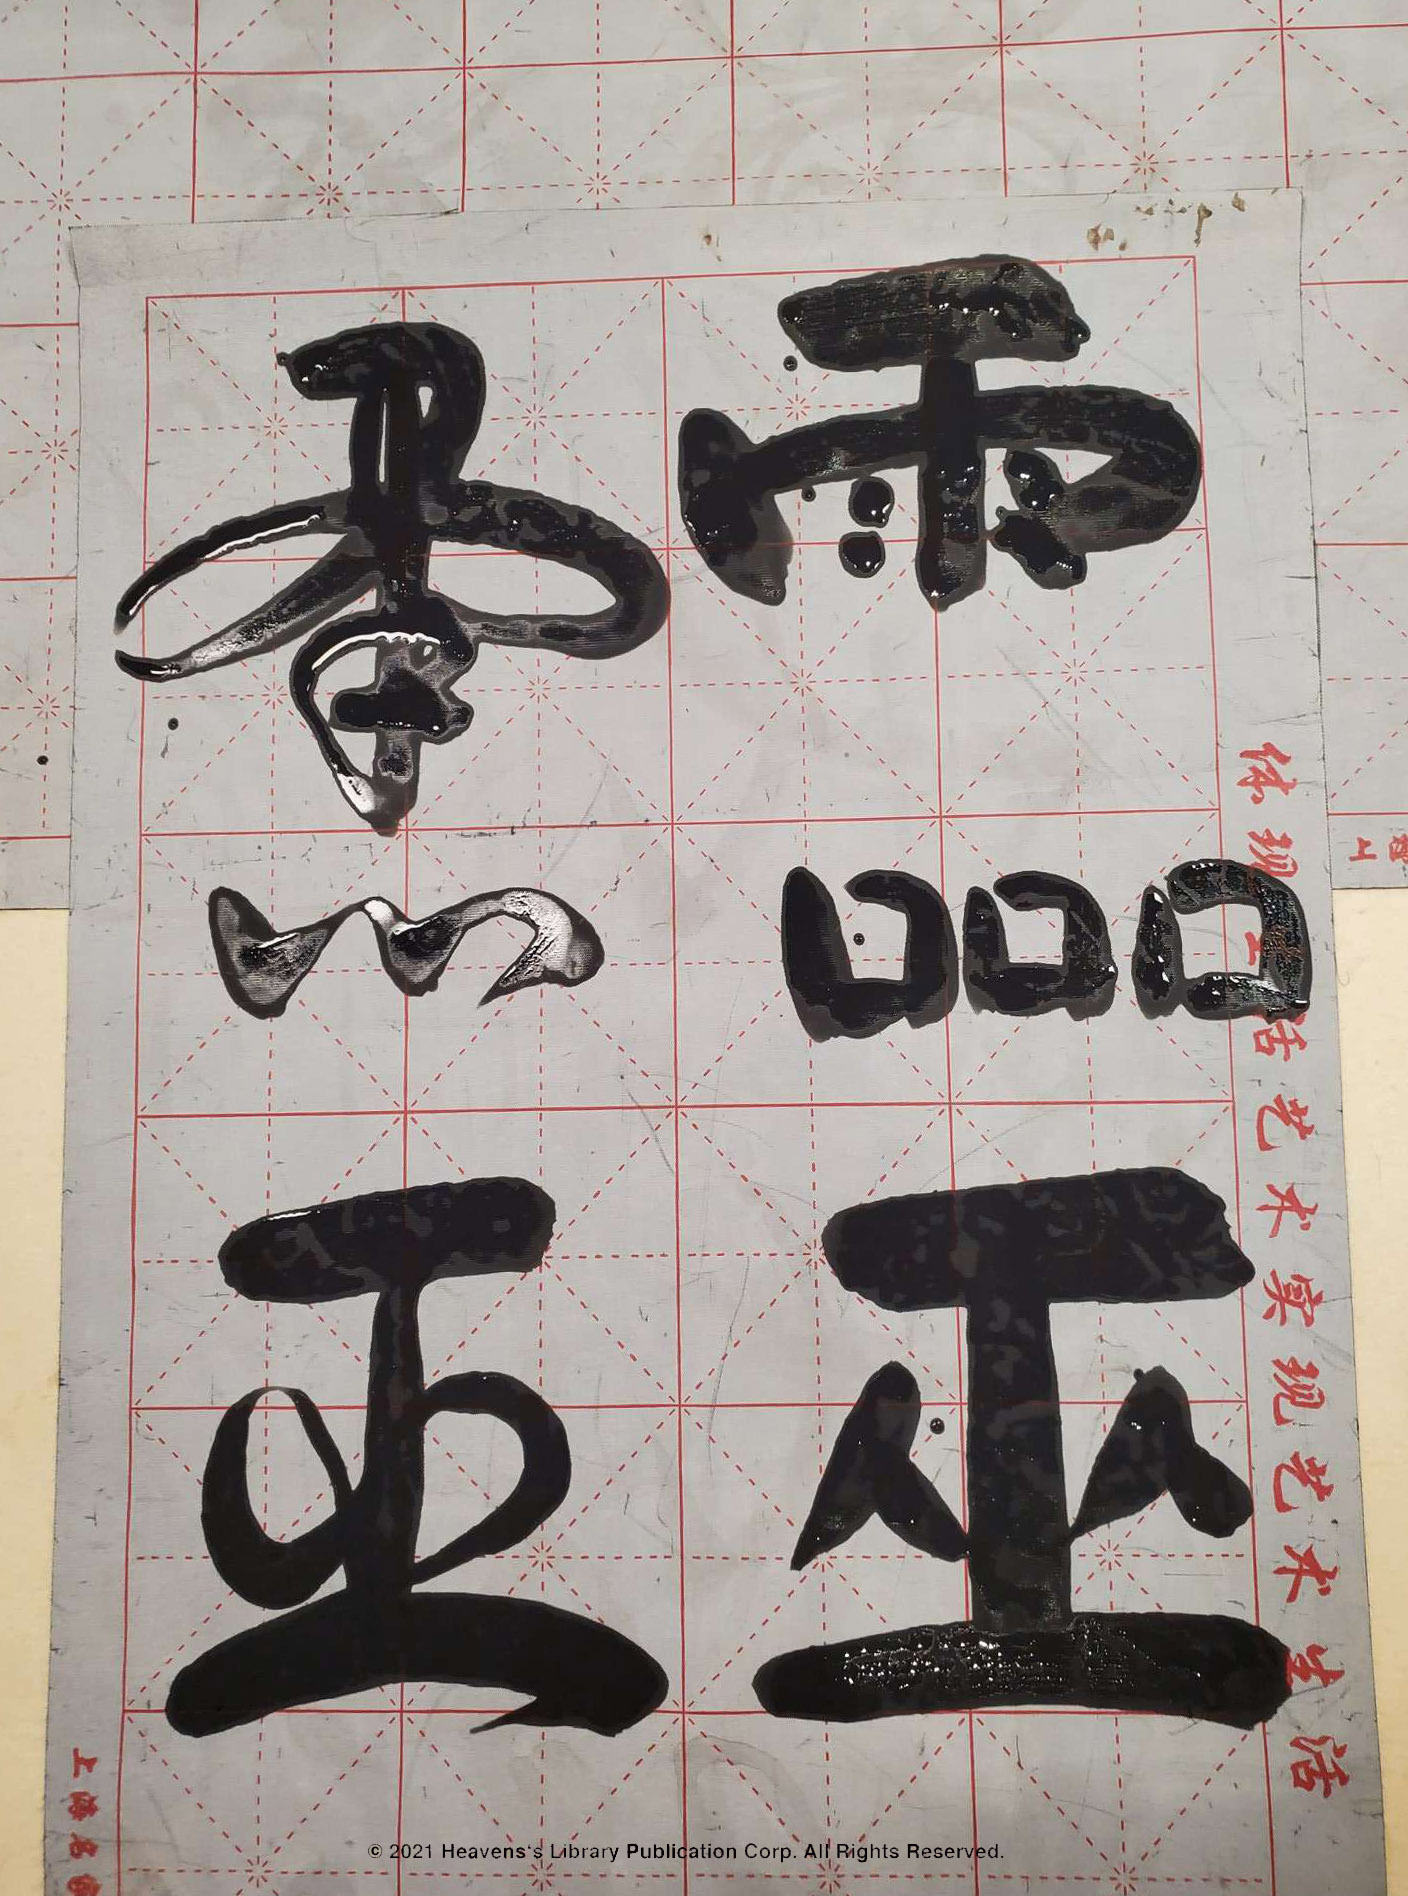 靈
靈
体现生活艺术实现艺术生活
上海名
© 2021 Heavens's Library Publication Corp. All Rights Reserved.